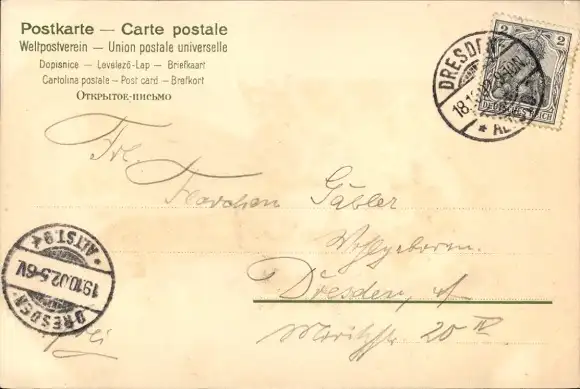 Postkarte — Carte postale
Weltpostverein — Union postale universelle
Dopisnice — Levelező-Lap — Briefkaart
Cartolina postale — Post card — Brefkort
Открытое-письмо
2 2
DEUTSCHES REICH
DRESDEN
18.10.02
Frl.
Flörchen Gäbler
Wohlgeboren.
Dresden,
Moritzstr. 20 IV
DRESDEN
19.10.02.5-6V.
* ALTST. 9